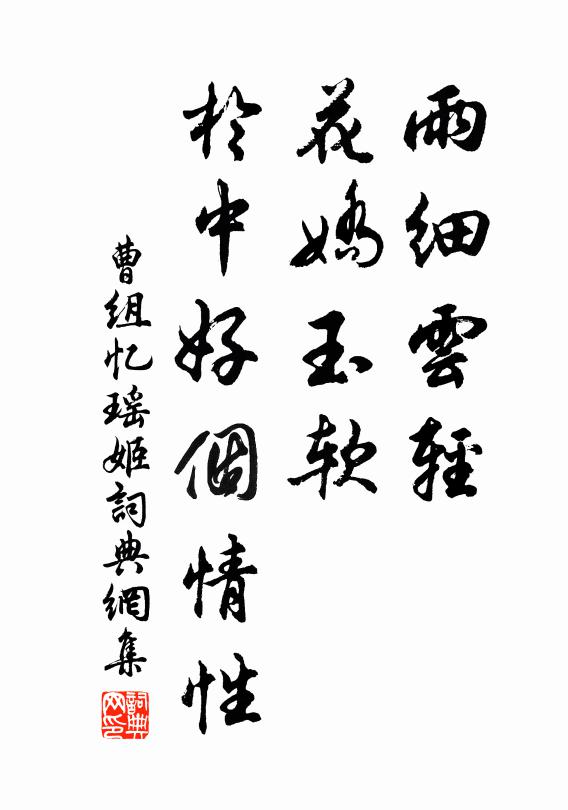 雨細雲輕
花嬌玉軟
於中好個情性
曹組忆瑶姬詞典網集
詞典网印